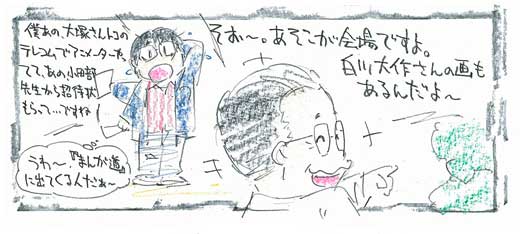 僕あの、大塚さんトコの
テレコムでアニメーターやっ
てて、あの、小田部
先生から招待状
もらって…ですね
うわ〜『まんが道』
に出てくるんだぁ〜
そぉ〜。あそこが会場ですよ。
白川大作さんの画も
あるんだよ〜